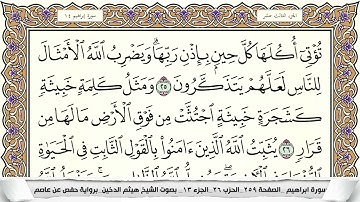 الجزء الثالث عشر
سورة إبراهيم ١٤
تُؤْتِىٓ أُكُلَهَا كُلَّ حِينٍۭ بِإِذْنِ رَبِّهَا ۗ وَيَضْرِبُ ٱللَّهُ ٱلْأَمْثَالَ
لِلنَّاسِ لَعَلَّهُمْ يَتَذَكَّرُونَ ٢٥ وَمَثَلُ كَلِمَةٍ خَبِيثَةٍ
كَشَجَرَةٍ خَبِيثَةٍ ٱجْتُثَّتْ مِن فَوْقِ ٱلْأَرْضِ مَا لَهَا مِن
قَرَارٍ ٢٦ يُثَبِّتُ ٱللَّهُ ٱلَّذِينَ ءَامَنُوا۟ بِٱلْقَوْلِ ٱلثَّابِتِ فِى ٱلْحَيَوٰةِ
سورة ابراهيم _الصفحة ٢٥٩ _الحزب ٢٦ _الجزء ١٣ _ بصوت الشيخ هيثم الدخين_ برواية حفص عن عاصم